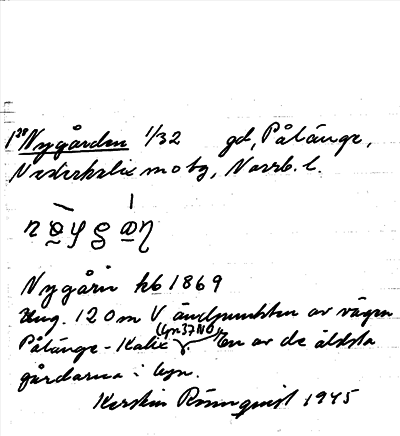 1²⁰ Nygården 1/32 gd, Pålänge,
Nederkalix m o tg, Norrb. l.
Nygårn kb 1869
Ung. 120 m V ändpunkten av vägen
(byn 37 NO)
Pålänge - Kalix En av de äldsta
gårdarna i byn.
Kerstin Rönnquist 1945